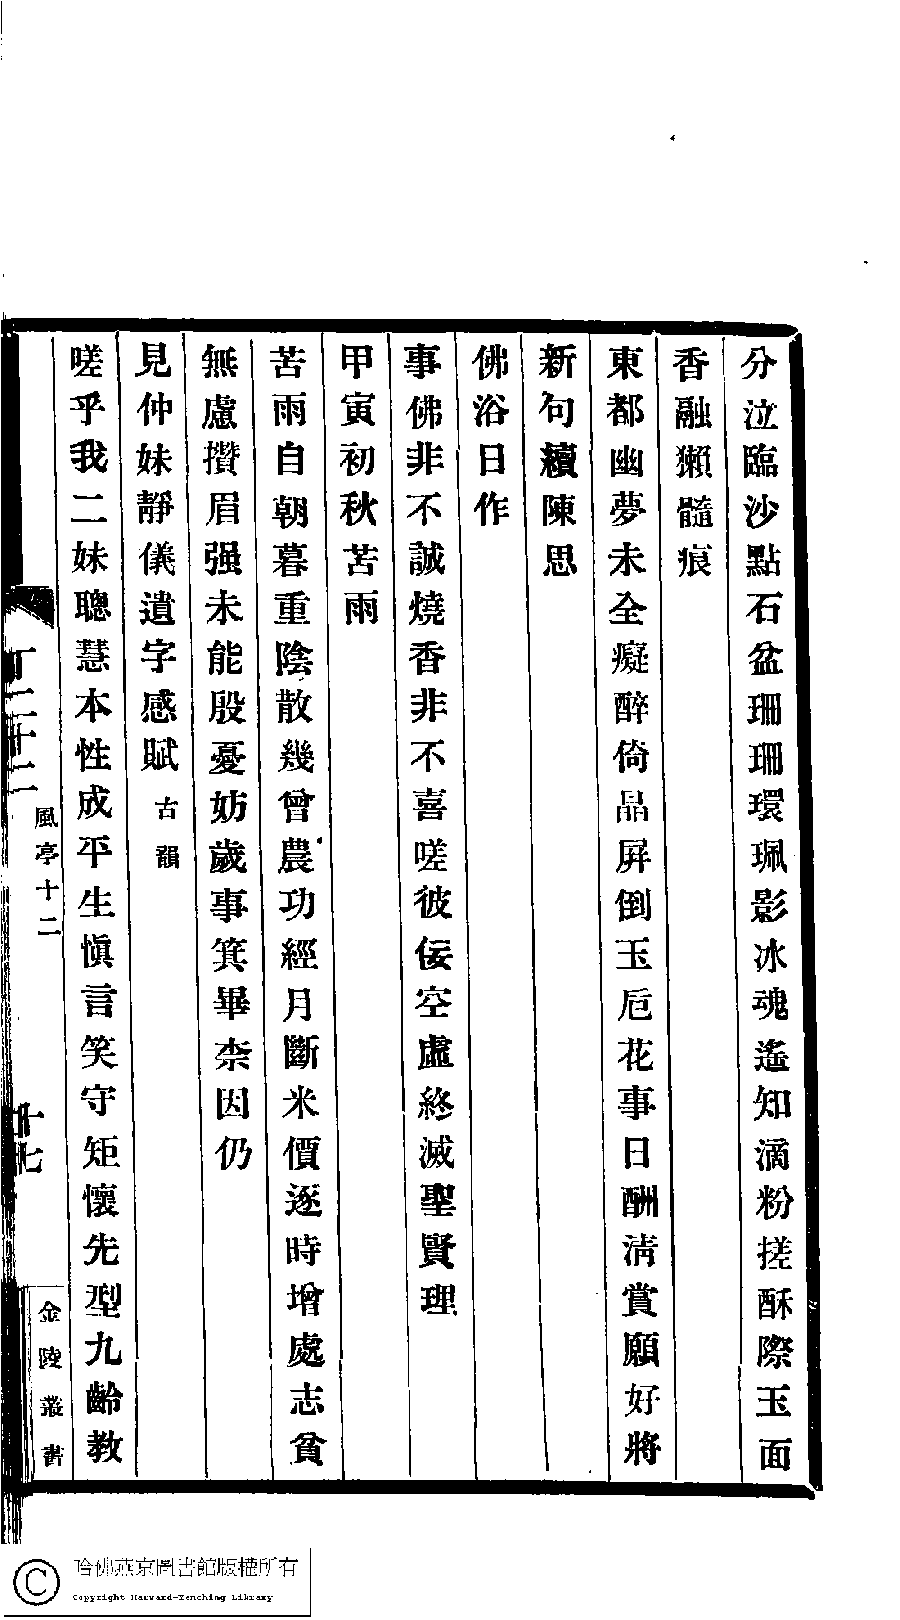 分泣臨沙點石盆珊珊環珮影冰魂遙知滴粉搓酥際玉面
香融獺髓痕
東都幽夢未全癡醉倚晶屏倒玉卮花事日酬淸賞願好將
新句續陳思
佛浴日作
事佛非不誠燒香非不喜嗟彼佞空虛終滅聖賢理
甲寅初秋苦雨
苦雨自朝暮重陰散幾曾農功經月斷米價逐時增處志貧
無慮攢眉强未能殷憂妨歲事箕畢柰因仍
見仲妹靜儀遺字感賦 古韻
嗟乎我二妹聰慧本性成平生愼言笑守矩懷先型九齡教
丁二十二
風亭十二
十七
金陵叢書
哈佛燕京圖書館版權所有
Copyright Harvard-Yenching Library